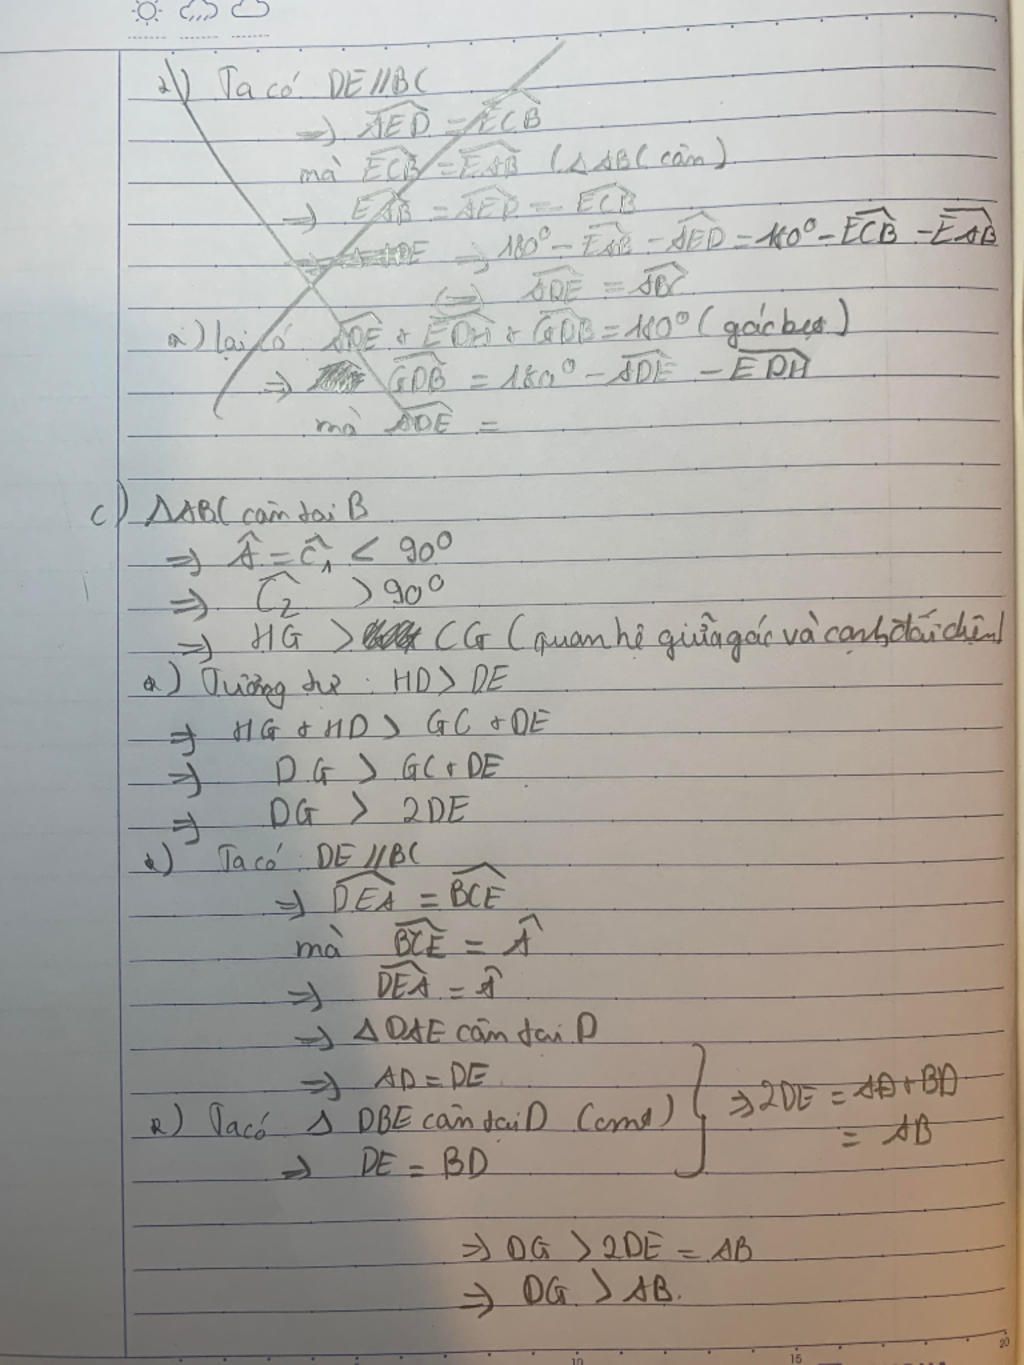 2) Ta có DE//BC
=> AED = ECB
mà ECB = EAB (ΔABC cân)
=> EAB = AED = ECB
=> 180° - EAB - AED = 180° - ECB - EAB
(=) ADE = ABC
a) lại có ADE + EDH + GDB = 180° (góc bẹt)
=> GDB = 180° - ADE - EDH
mà ADE =
c) ΔABC cân tại B
=> Â = Ĉ₁ < 90°
=> Ĉ₂ > 90°
=> HG > CG (quan hệ giữa góc và cạnh đối diện)
a) Tương tự: HD > DE
=> HG + HD > GC + DE
=> DG > GC + DE
=> DG > 2DE
a) Ta có DE//BC
=> DEA = BCE
mà BCE = Â
=> DEA = Â
=> ΔDAE cân tại D
=> AD = DE
a) Ta có Δ DBE cân tại D (cmt)
=> DE = BD
} => 2DE = AD + BD
= AB
=> DG > 2DE = AB
=> DG > AB.
15
20